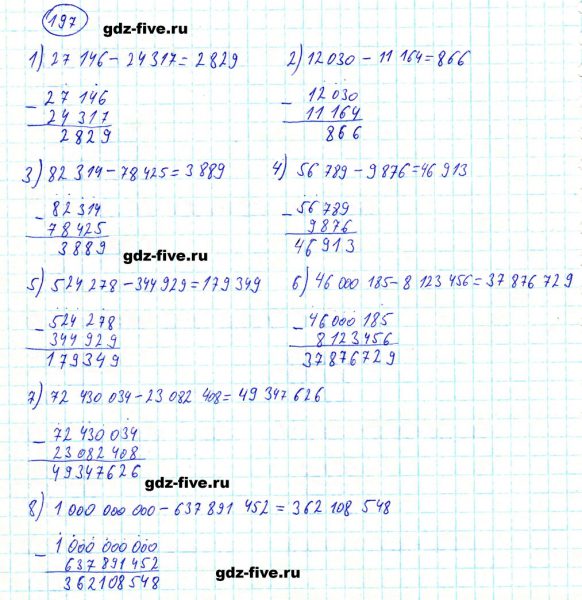 197
gdz-five.ru
1) 27 146 - 24 317 = 2 829
2) 12 030 - 11 164 = 866
- 27 146
24 317
2 829
- 12 030
11 164
866
3) 82 314 - 78 425 = 3 889
4) 56 789 - 9 876 = 46 913
- 82 314
78 425
3 889
- 56 789
9 876
46 913
gdz-five.ru
5) 524 278 - 344 929 = 179 349
6) 46 000 185 - 8 123 456 = 37 876 729
- 524 278
344 929
179349
- 46000 185
8123456
37876729
7) 72 430 034 - 23 082 408 = 49 347 626
- 72 430 034
23 082 408
49347626
gdz-five.ru
8) 1 000 000 000 - 637 891 452 = 362 108 548
- 1 000 000 000
637891452
362108548
gdz-five.ru